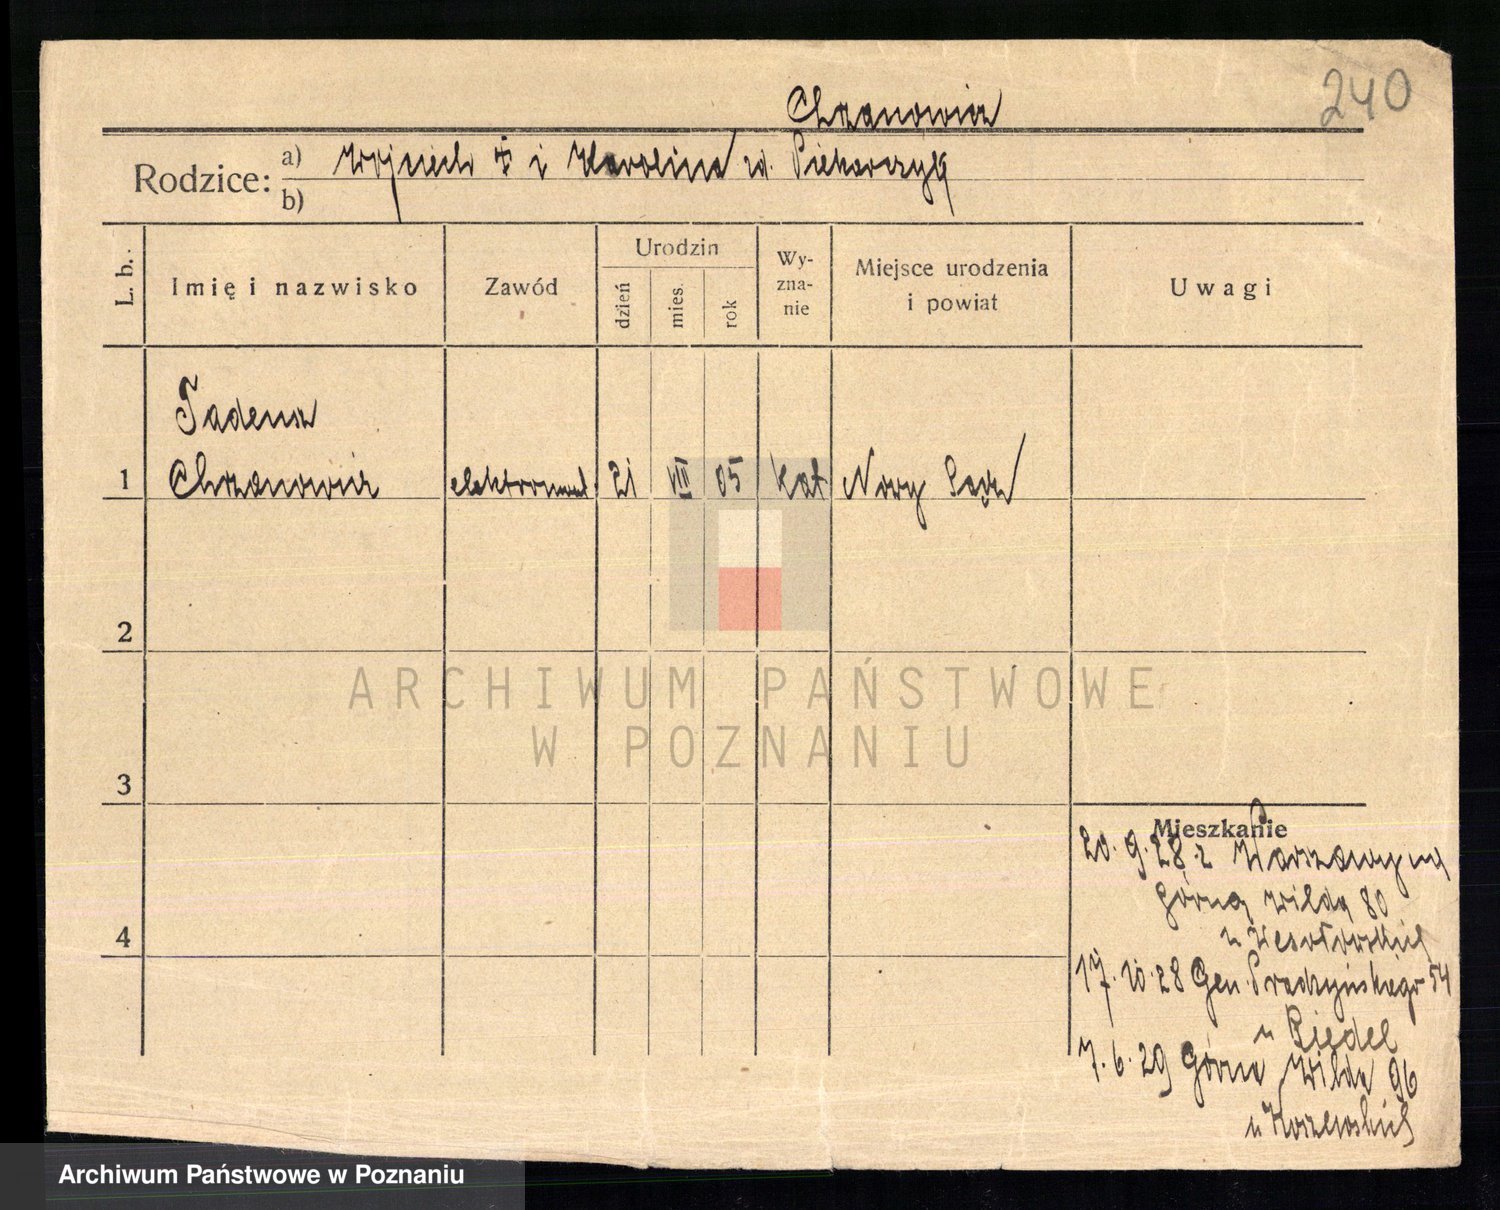 240
Chrzanowicz
Rodzice: a) Wojciech ✝ i Karolina zd. Piekarczyk
b)
L. b. Imię i nazwisko Zawód Urodzin dzień mies. rok Wy-zna-nie Miejsce urodzenia i powiat Uwagi
Tadeusz
1 Chrzanowicz elektromont 21 VIII 05 kat Nowy Sącz
2
ARCHIWUM PAŃSTWOWE
W POZNANIU
3
Mieszkanie
20.9.28 z Warszawy na
Górną Wildę 80
u Wesołowskich
4
17.10.28 Gen. Prądzyńskiego 54
u Riedel
7.6.29 Górna Wilda 96
u
Archiwum Państwowe w Poznaniu